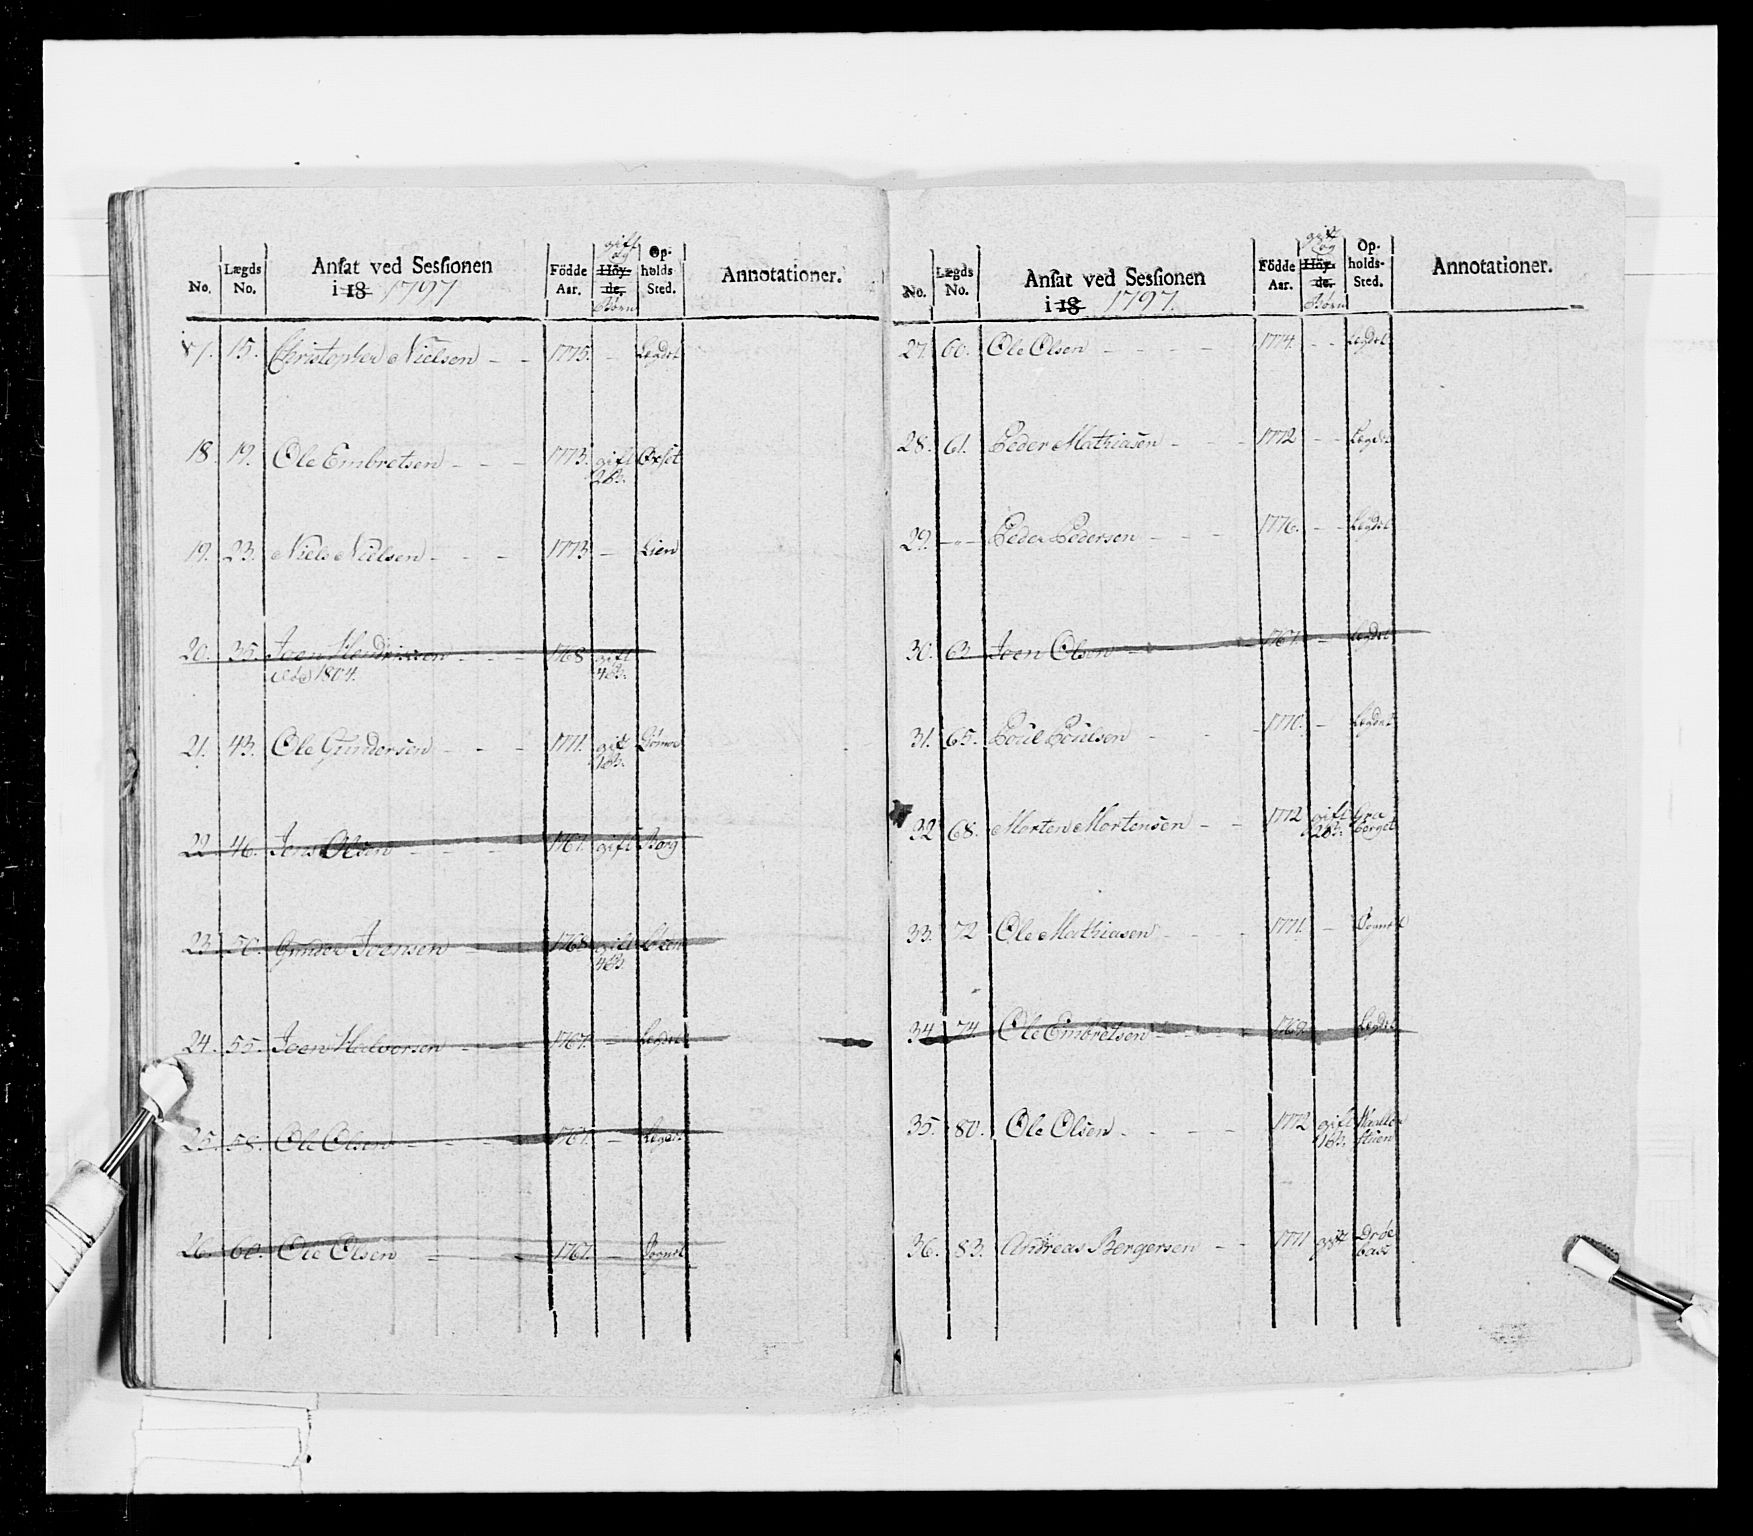 No. Lægds No. Ansat ved Sessionen i 18 1797 Födde Aar. gift og Höyde. Børn Opholds Sted. Annotationer.
15. Christopher Nielsen 1775. Legdet
18. 19. Ole Embretsen 1773. gift
2 B.
19. 23. Niels Nielsen 1773 Lien
20. 35. Joen Hendrichsen 1768 gift
1804. 4 B.
21. 43. Ole Gundersen 1771. gift
1 B.
22 46. Jens Olsen 1767. gift Borg
23. 50. Gunder Joensen 1768 gift
4 B.
24. 55. Joen Halvorsen 1767. Legdet
25. 58. Ole Olsen 1767. Legdet
26. 60. Ole Olsen 1767. Sognet
No. Lægds No. Ansat ved Sessionen i 18 1797. Födde Aar. gift og Höyde. Børn Opholds-Sted. Annotationer.
27. 60. Ole Olsen 1774. Legdet
28. 61. Peder Mathiasen 1772 Legdet
29. -"- Peder Pedersen 1776. Legdet
30. 63 Joen Olsen 1767. Legdet
31. 65. Poul Poulsen 1770. Legdet
32 68. Morten Mortensen 1772 gift
2 B. berget
33. 72 Ole Mathiasen 1771. Sognet
34 74. Ole Embretsen 1768 Legdet
35. 80. Ole Olsen 1772 gift
1 B. stuen
36. 83. Andreas Bergersen 1771 gift Drøe
bak